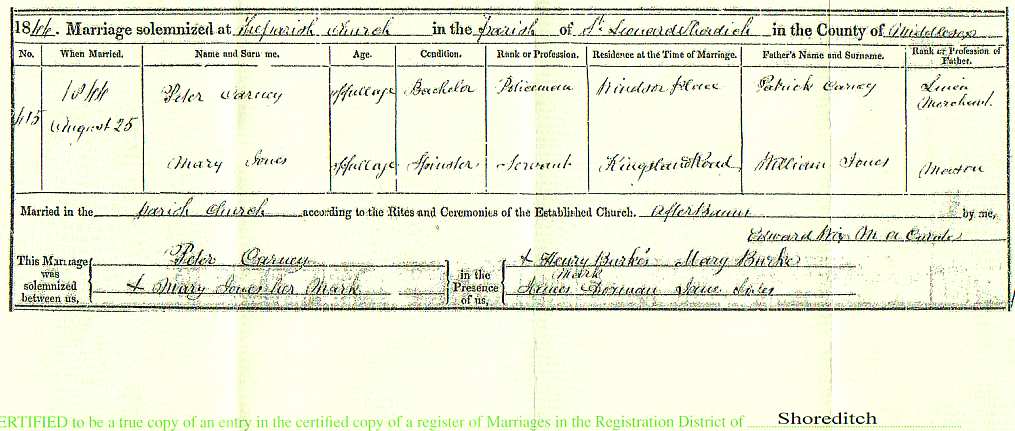 1844. Marriage solemnized at The parish Church in the parish of St. Leonard Shoreditch in the County of Middlesex
No. When Married. Name and Surname. Age. Condition. Rank or Profession. Residence at the Time of Marriage. Father's Name and Surname. Rank or Profession of Father.
415 1844 August 25 Peter Carney of full age Bachelor Policeman Windsor Place Patrick Carney Linen Merchant.
Mary Jones of full age Spinster Servant Kingsland Road William Jones Mason
Married in the parish Church according to the Rites and Ceremonies of the Established Church. After Banns by me,
Edward M a Curate
This Marriage was solemnized between us, Peter Carney
+ Mary Jones her Mark
in the Presence of us, + Henry Burke's Mark Mary Burke
James Dorman Jane
CERTIFIED to be a true copy of an entry in the certified copy of a register of Marriages in the Registration District of Shoreditch